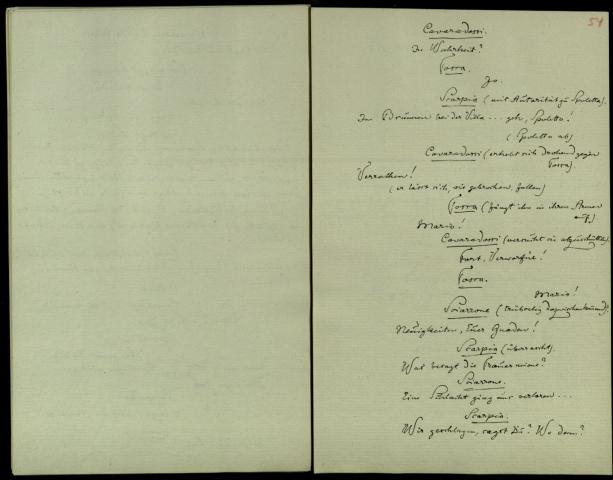 51
Cavaradossi.
In Wahrheit?
Tosca.
Ja.
Scarpia (mit Autorität zu Spoletta).
Im Brunnen bei der Villa ... geh, Spoletta!
(Spoletta ab)
Cavaradossi (erhebt sich drohend gegen
Tosca)
Verrathen!
(er lässt sich, wie gebrochen, fallen)
Tosca (fängt ihn in ihren Armen
auf).
Mario!
Cavaradossi (versucht sie abzuschütteln).
Fort, Verworfne!
Tosca.
Mario!
Sciarrone (dazwischenkommend).
Neuigkeiten, Euer Gnaden!
Scarpia (überrascht).
Was besagt die Trauermiene?
Sciarrone.
Eine Schlacht ging uns verloren ...
Scarpia.
Wir geschlagen, sagst Du? Wo denn?